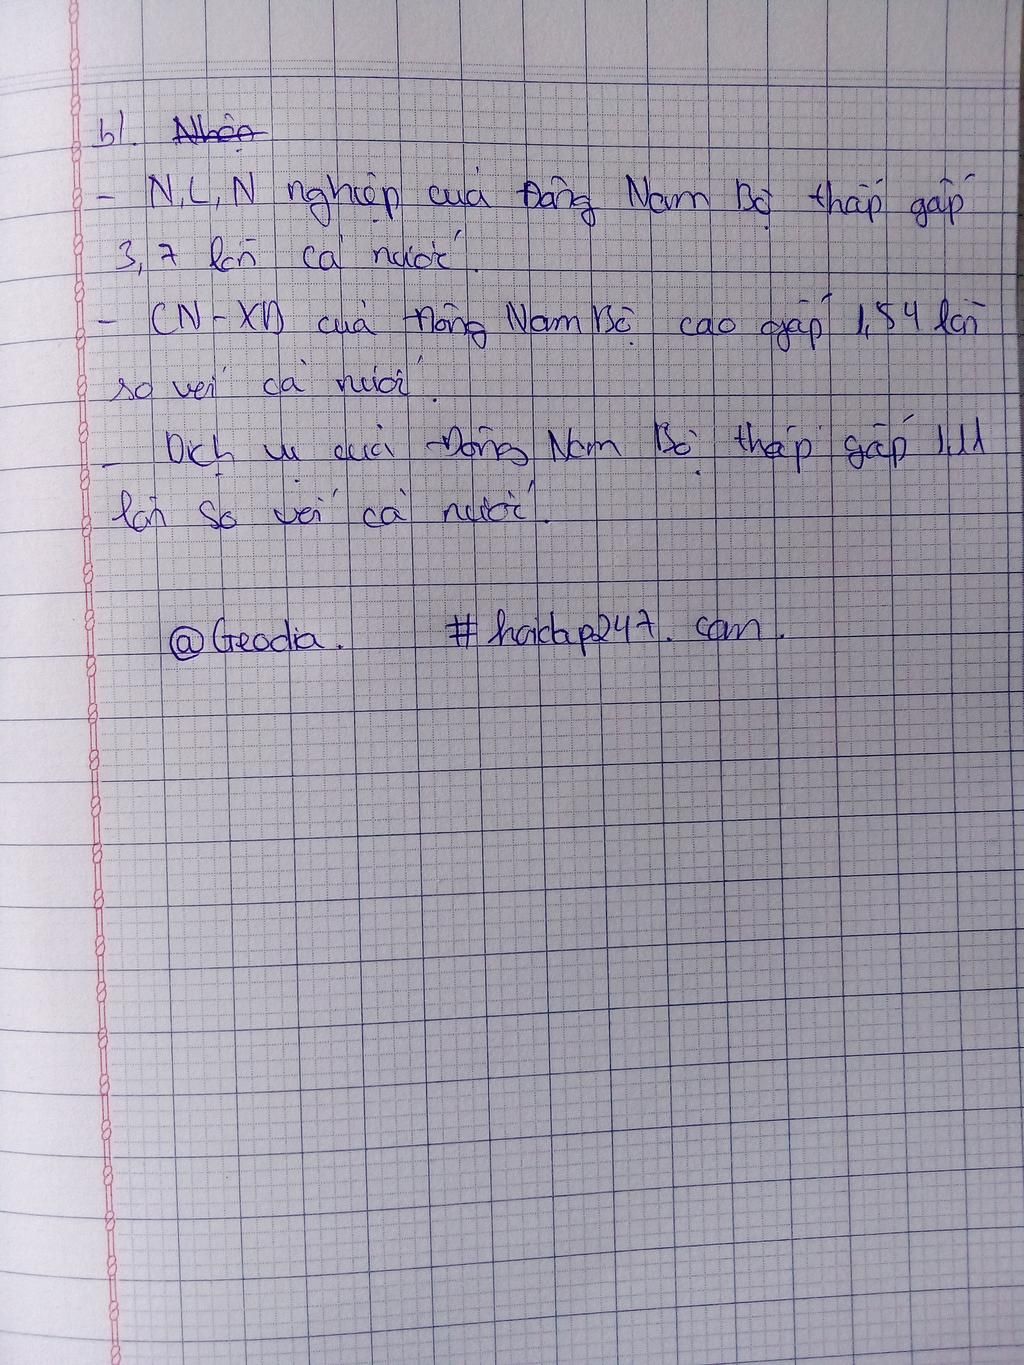 b/.
- N, L, N nghiệp của Đông Nam Bộ thấp gấp
3,7 lần cả nước.
- CN-XD của Đông Nam Bộ cao gấp 1,54 lần
so với cả nước.
- Dịch vụ của Đông Nam Bộ thấp gấp 1,11
lần so với cả nước.
@Geodia. #hoidap247.com.